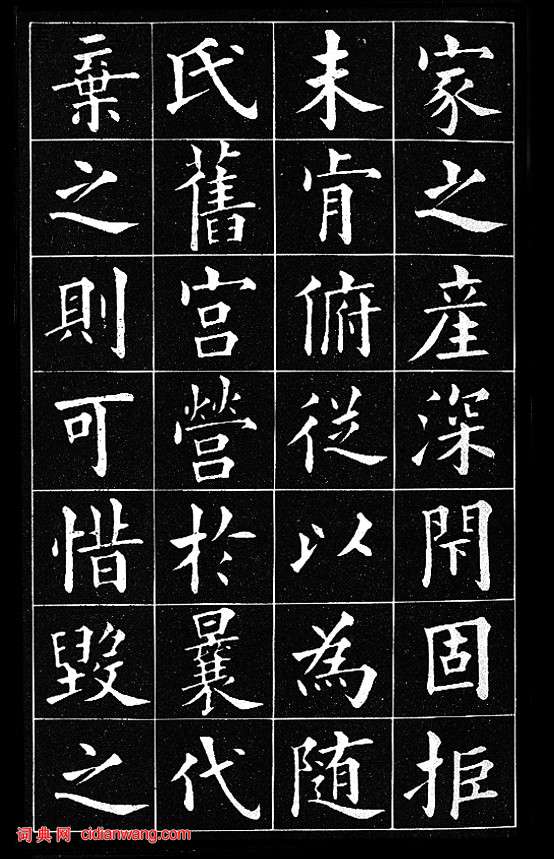 家之產深閇固拒
未肯俯從以為隨
氏舊宮營於曩代
棄之則可惜毀之
词典网 cidianwang.com